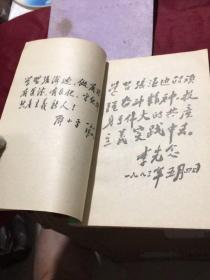 学习张海迪，做有理想
有道德、有文化、守纪律的
共产主义新人！
邓小平
学习张海迪的顽
强奋斗精神，投
身于伟大的共产
主义实践中去。
李先念
一九八三年五月四日